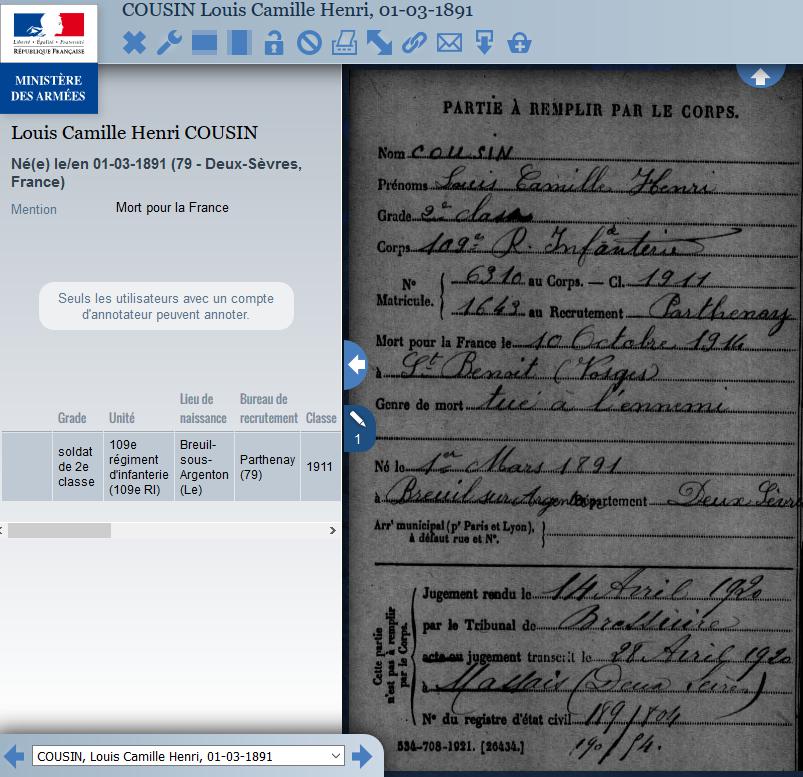 COUSIN Louis Camille Henri, 01-03-1891
Liberté • Égalité • Fraternité
RÉPUBLIQUE FRANÇAISE
MINISTÈRE
DES ARMÉES
Louis Camille Henri COUSIN
Né(e) le/en 01-03-1891 (79 - Deux-Sèvres,
France)
Mention Mort pour la France
Seuls les utilisateurs avec un compte
d'annotateur peuvent annoter.
Grade Unité Lieu de naissance Bureau de recrutement Classe
soldat de 2e classe 109e régiment d'infanterie (109e RI) Breuil-sous-Argenton (Le) Parthenay (79) 1911
COUSIN, Louis Camille Henri, 01-03-1891
1
PARTIE À REMPLIR PAR LE CORPS.
Nom COUSIN
Prénoms Louis Camille Henri
Grade 2e class
Corps 109e R. d'Infanterie
N° Matricule. 6310 au Corps. — Cl. 1911
1643 au Recrutement Parthenay
Mort pour la France le 10 Octobre 1914
à St Benoit (Vosges)
Genre de mort tué à l'ennemi
Né le 1er Mars 1891
à Breuil sur Argenton Département Deux Sèvres
Arr' municipal (p' Paris et Lyon),
à défaut rue et N°.
Cette partie
n'est pas à remplir
par le Corps.
Jugement rendu le 14 Avril 1920
par le Tribunal de Bressuire
acte ou jugement transcrit le 28 Avril 1920
à Massais (Deux Sèvres)
N° du registre d'état civil 189/804
534-708-1921. [26434.] 190/54.